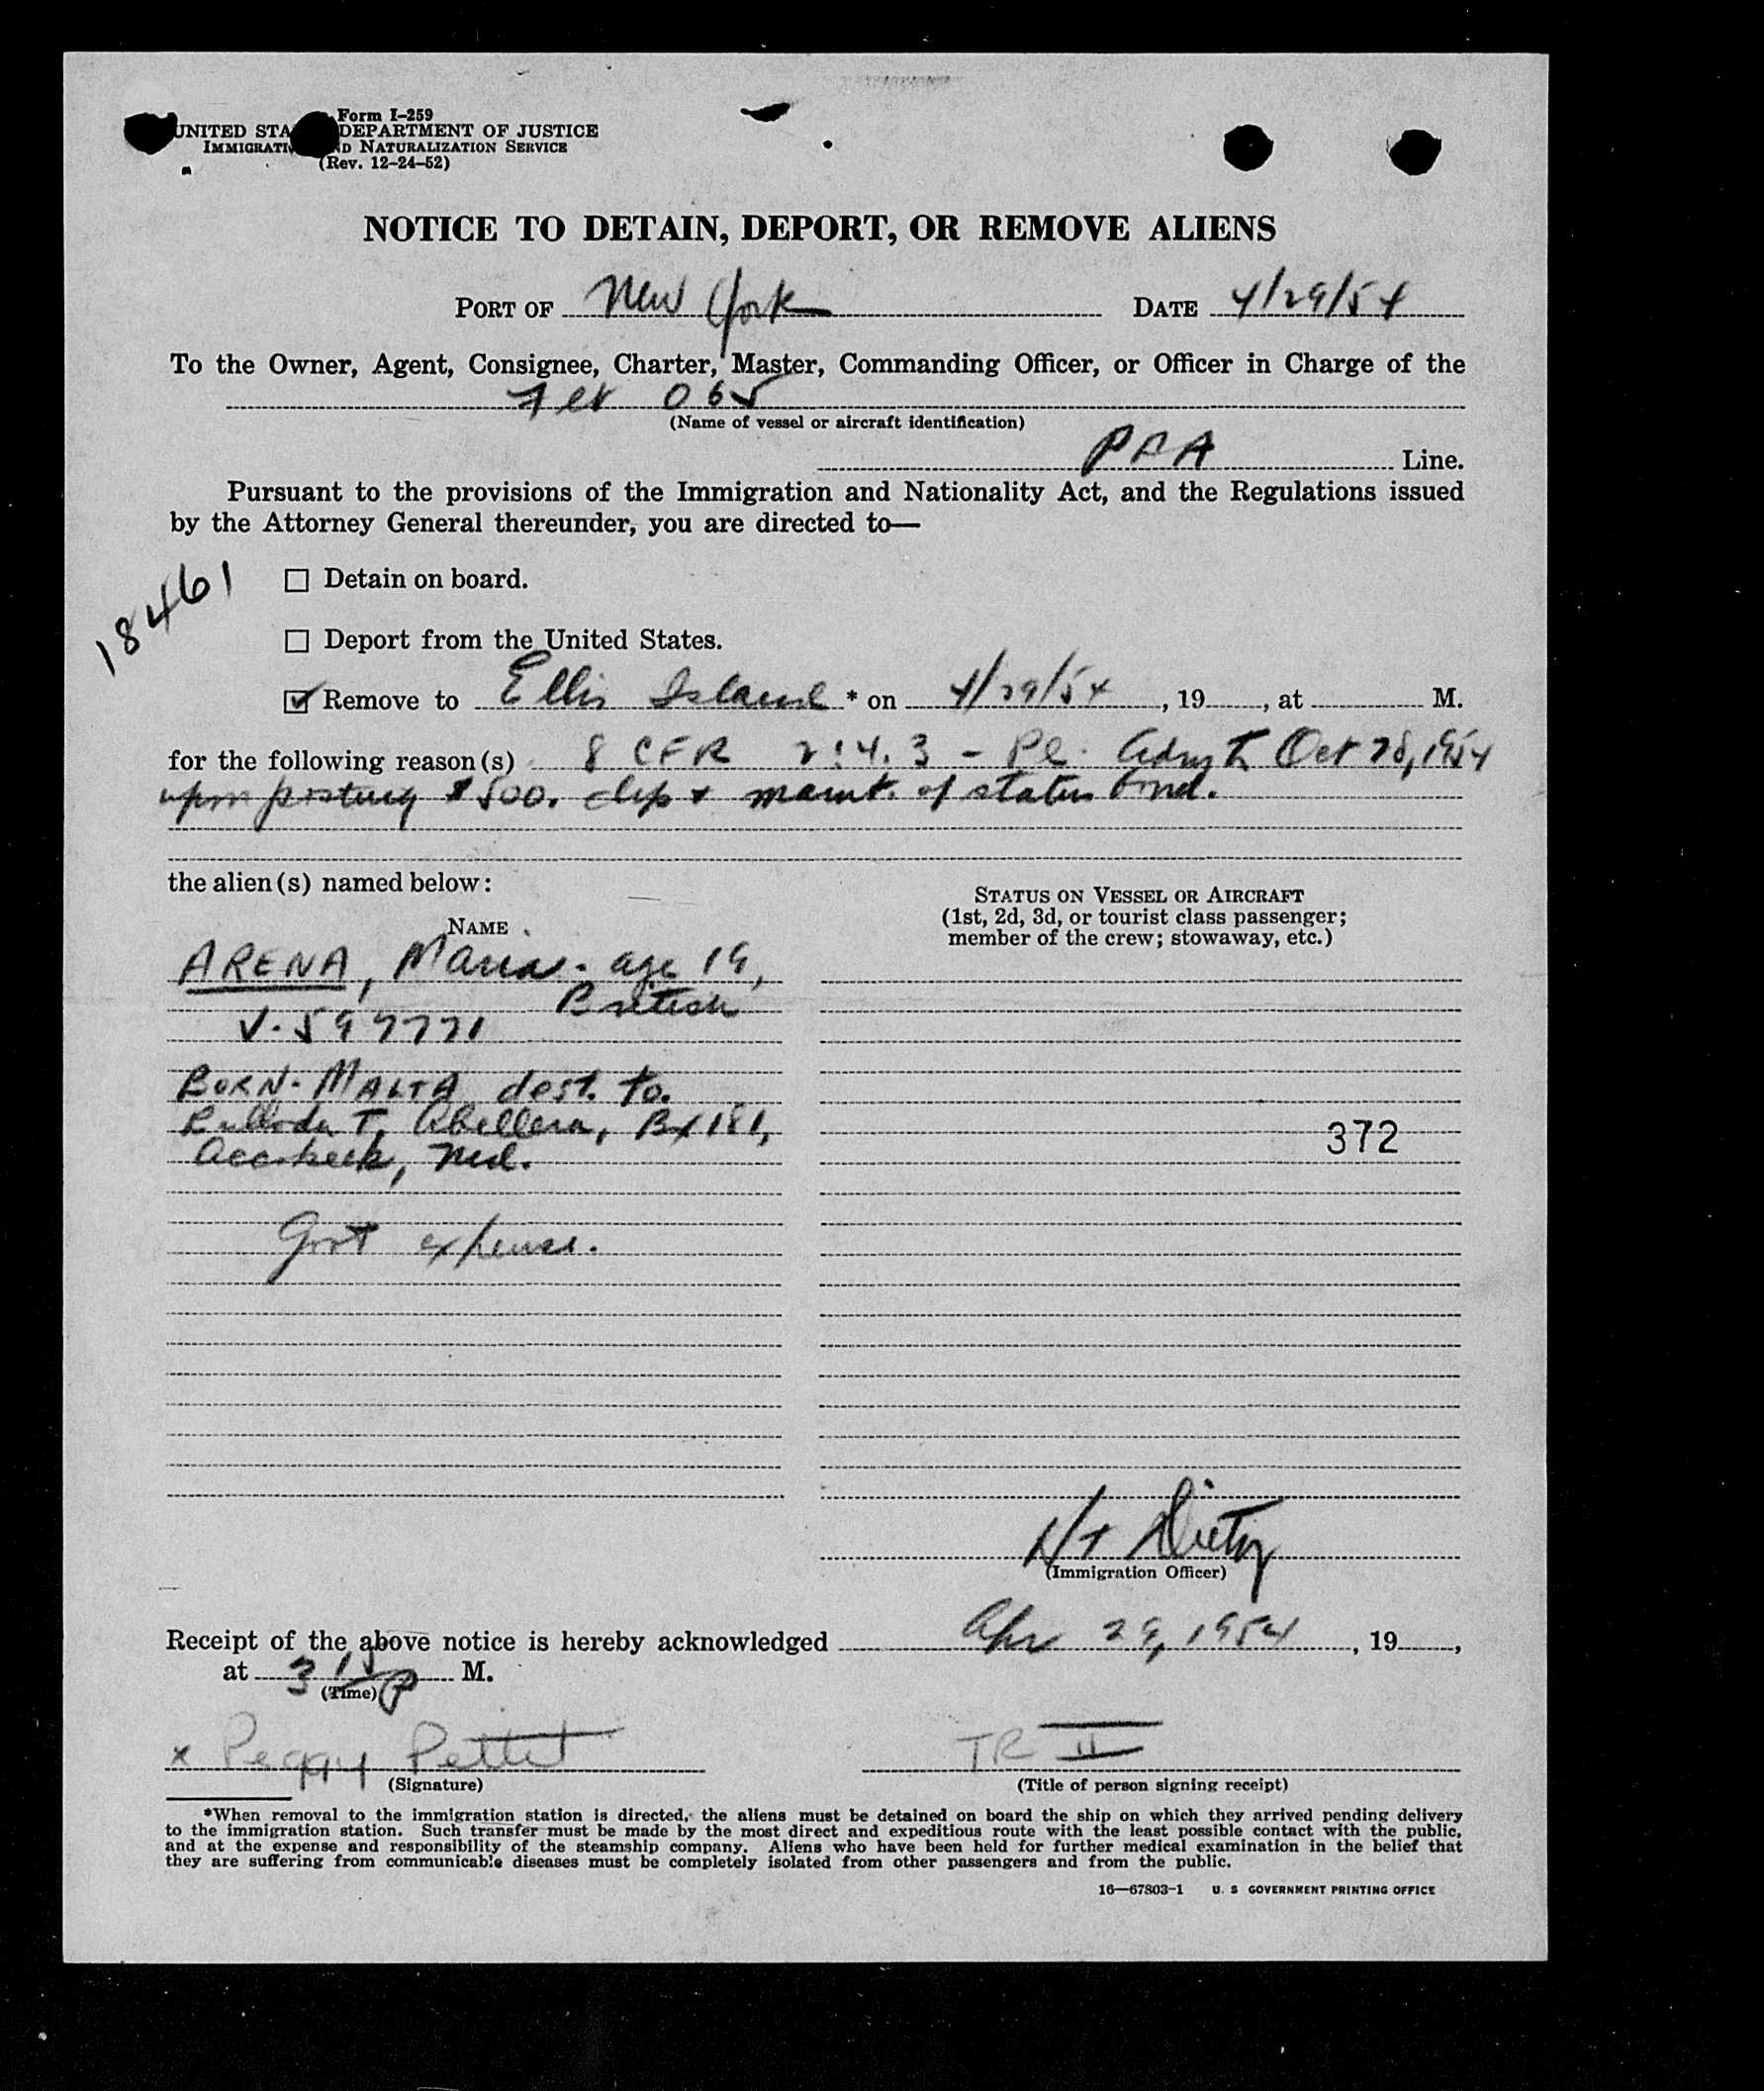 Form I-259
UNITED STA DEPARTMENT OF JUSTICE
IMMIGRATI D NATURALIZATION SERVICE
(Rev. 12-24-52)
NOTICE TO DETAIN, DEPORT, OR REMOVE ALIENS
PORT OF New York DATE 4/29/54
To the Owner, Agent, Consignee, Charter, Master, Commanding Officer, or Officer in Charge of the
065
(Name of vessel or aircraft identification)
PAA Line.
Pursuant to the provisions of the Immigration and Nationality Act, and the Regulations issued
by the Attorney General thereunder, you are directed to—
18461
☐ Detain on board.
☐ Deport from the United States.
☑ Remove to Ellis Island * on 4/29/54, 19 , at M.
for the following reason(s) 8 CFR 214.3 - Oct 28, 1954
upon posting $500. dep & maint. of status bond.
the alien(s) named below:
NAME
STATUS ON VESSEL OR AIRCRAFT
(1st, 2d, 3d, or tourist class passenger;
member of the crew; stowaway, etc.)
ARENA, Maria - age 19,
British
V-597771
BORN- MALTA dest. to.
T. Abellera, Bx 181,
Accokeek, Md.
372
Govt expense.
(Immigration Officer)
Receipt of the above notice is hereby acknowledged Apr 29, 1954, 19 ,
at 3 15 p M.
(Time)
x Peggy Pettit TR II
(Signature) (Title of person signing receipt)
*When removal to the immigration station is directed, the aliens must be detained on board the ship on which they arrived pending delivery
to the immigration station. Such transfer must be made by the most direct and expeditious route with the least possible contact with the public,
and at the expense and responsibility of the steamship company. Aliens who have been held for further medical examination in the belief that
they are suffering from communicable diseases must be completely isolated from other passengers and from the public.
16—67803-1 U. S GOVERNMENT PRINTING OFFICE